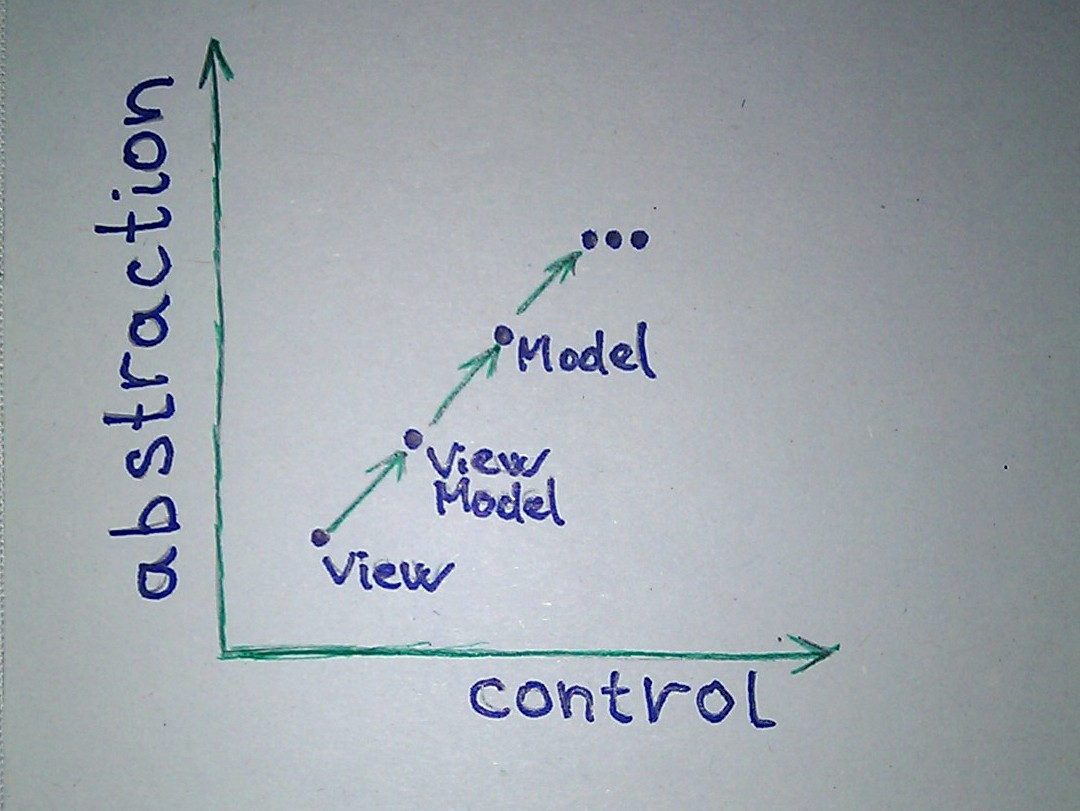 abstraction
...
Model
View
Model
View
control